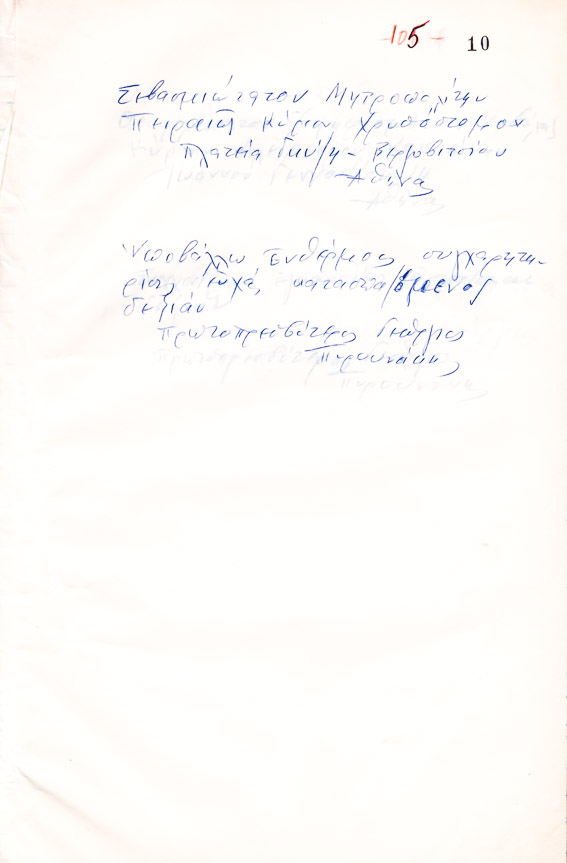 105 - 10
Σεβασμιώτατον Μητροπολίτην
Πειραιῶς Κύριον Χρυσόστομον
Πλατεία
Ἀθήνας
Ὑποβάλλω ἐνθέρμους συγχαρητη-
ρίους εὐχάς, κατασπαζόμενος
δεξιάν
Πρωτοπρεσβύτερος Γεώργιος
Πυρουνάκης